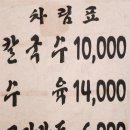 차림표
칼국수 10,000
수육 14,000